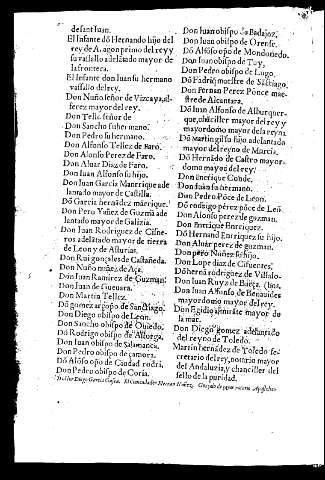 de sant Iuan.
El Infante dō Hernando hijo del
rey de Aragon primo del rey y
su vassallo adelātado mayor de
la frontera.
El Infante don Iuan su hermano
vassallo del rey.
Don Nuño señor de Vizcaya, al-
ferez mayor del rey.
Don Tello señor de
Don Sancho su hermano.
Don Pedro su hermano.
Don Alfonso Tellez de Faro.
Don Alonso Perez de Faro.
Don Aluar Diaz de Faro.
Don Iuan Alfonso su hijo.
Don Iuan Garcia Manrrique ade
lantado mayor de Castilla.
Dō Garcia hernādez mārrique.
Don Pero Yañez de Guzmā ade
lantado mayor de Galizia.
Don Iuan Rodriguez de Cisne-
ros adelātado mayor de tierra
de Leon y de Asturias.
Don Rui gonçales de Castañeda.
Don Nuño nuñez de Aça.
Don Iuan Ramirez de Guzman.
Don Iuan de Gueuara.
Don Martin Tellez.
Dō gomez arçopo de Santiago.
Don Diego obispo de Leon.
Don Sancho obispo de Ouiedo.
Dō Rodrigo obispo de Astorga.
Don Iuan obispo de Salamanca.
Don Pedro obispo de çamora.
Dō Alōso oōpo de Ciudad rodri.
Don Pedro obispo de Coria.
Don Iuan obispo de Badajoz.
Don Iuan obispo de Orense.
Dō Alfōso opo de Mondoñedo.
Don Iuan obispo de Tuy,
Don Pedro obispo de Lugo.
Dō Fadriq maestre de Sātiago.
Don Fernan Perez Pōnce mae-
stre de Alcantara.
Dō Iuan Alfonso de Alburquer-
que, chāciller mayor del rey y
mayordomo mayor de la reyna
Dō Martin gil su hijo adelantado
mayor del reyno de Murcia.
Dō Hernādo de Castro mayor-
domo mayor del rey.
Don Enrrique Conde.
Don Iuan su hermano.
Don Pedro Pōce de Leon.
Dō rodrigo pérez pōce de Leō
Don Alonso perez de guzman.
Don Enrrique Enrriquez.
Dō Hernand Enrriquez su hijo.
Don Aluar perez de guzman.
Don pero Nuñez su hijo.
Don Lope diaz de Cifuentes,
Dō hernā rodriguez de Villalo-
Don Iuan Ruyz de Baeça. (bos,
Don Iuan Alfonso de Benauides
mayordomo mayor del rey.
Don Egidio almirāte mayor de
la mar.
Don Diego gomez adelantado
del reyno de Toledo.
Martin hernādez de Toledo se-
cretario del rey, notario mayor
del Andaluzia, y chanciller del
sello de la puridad.